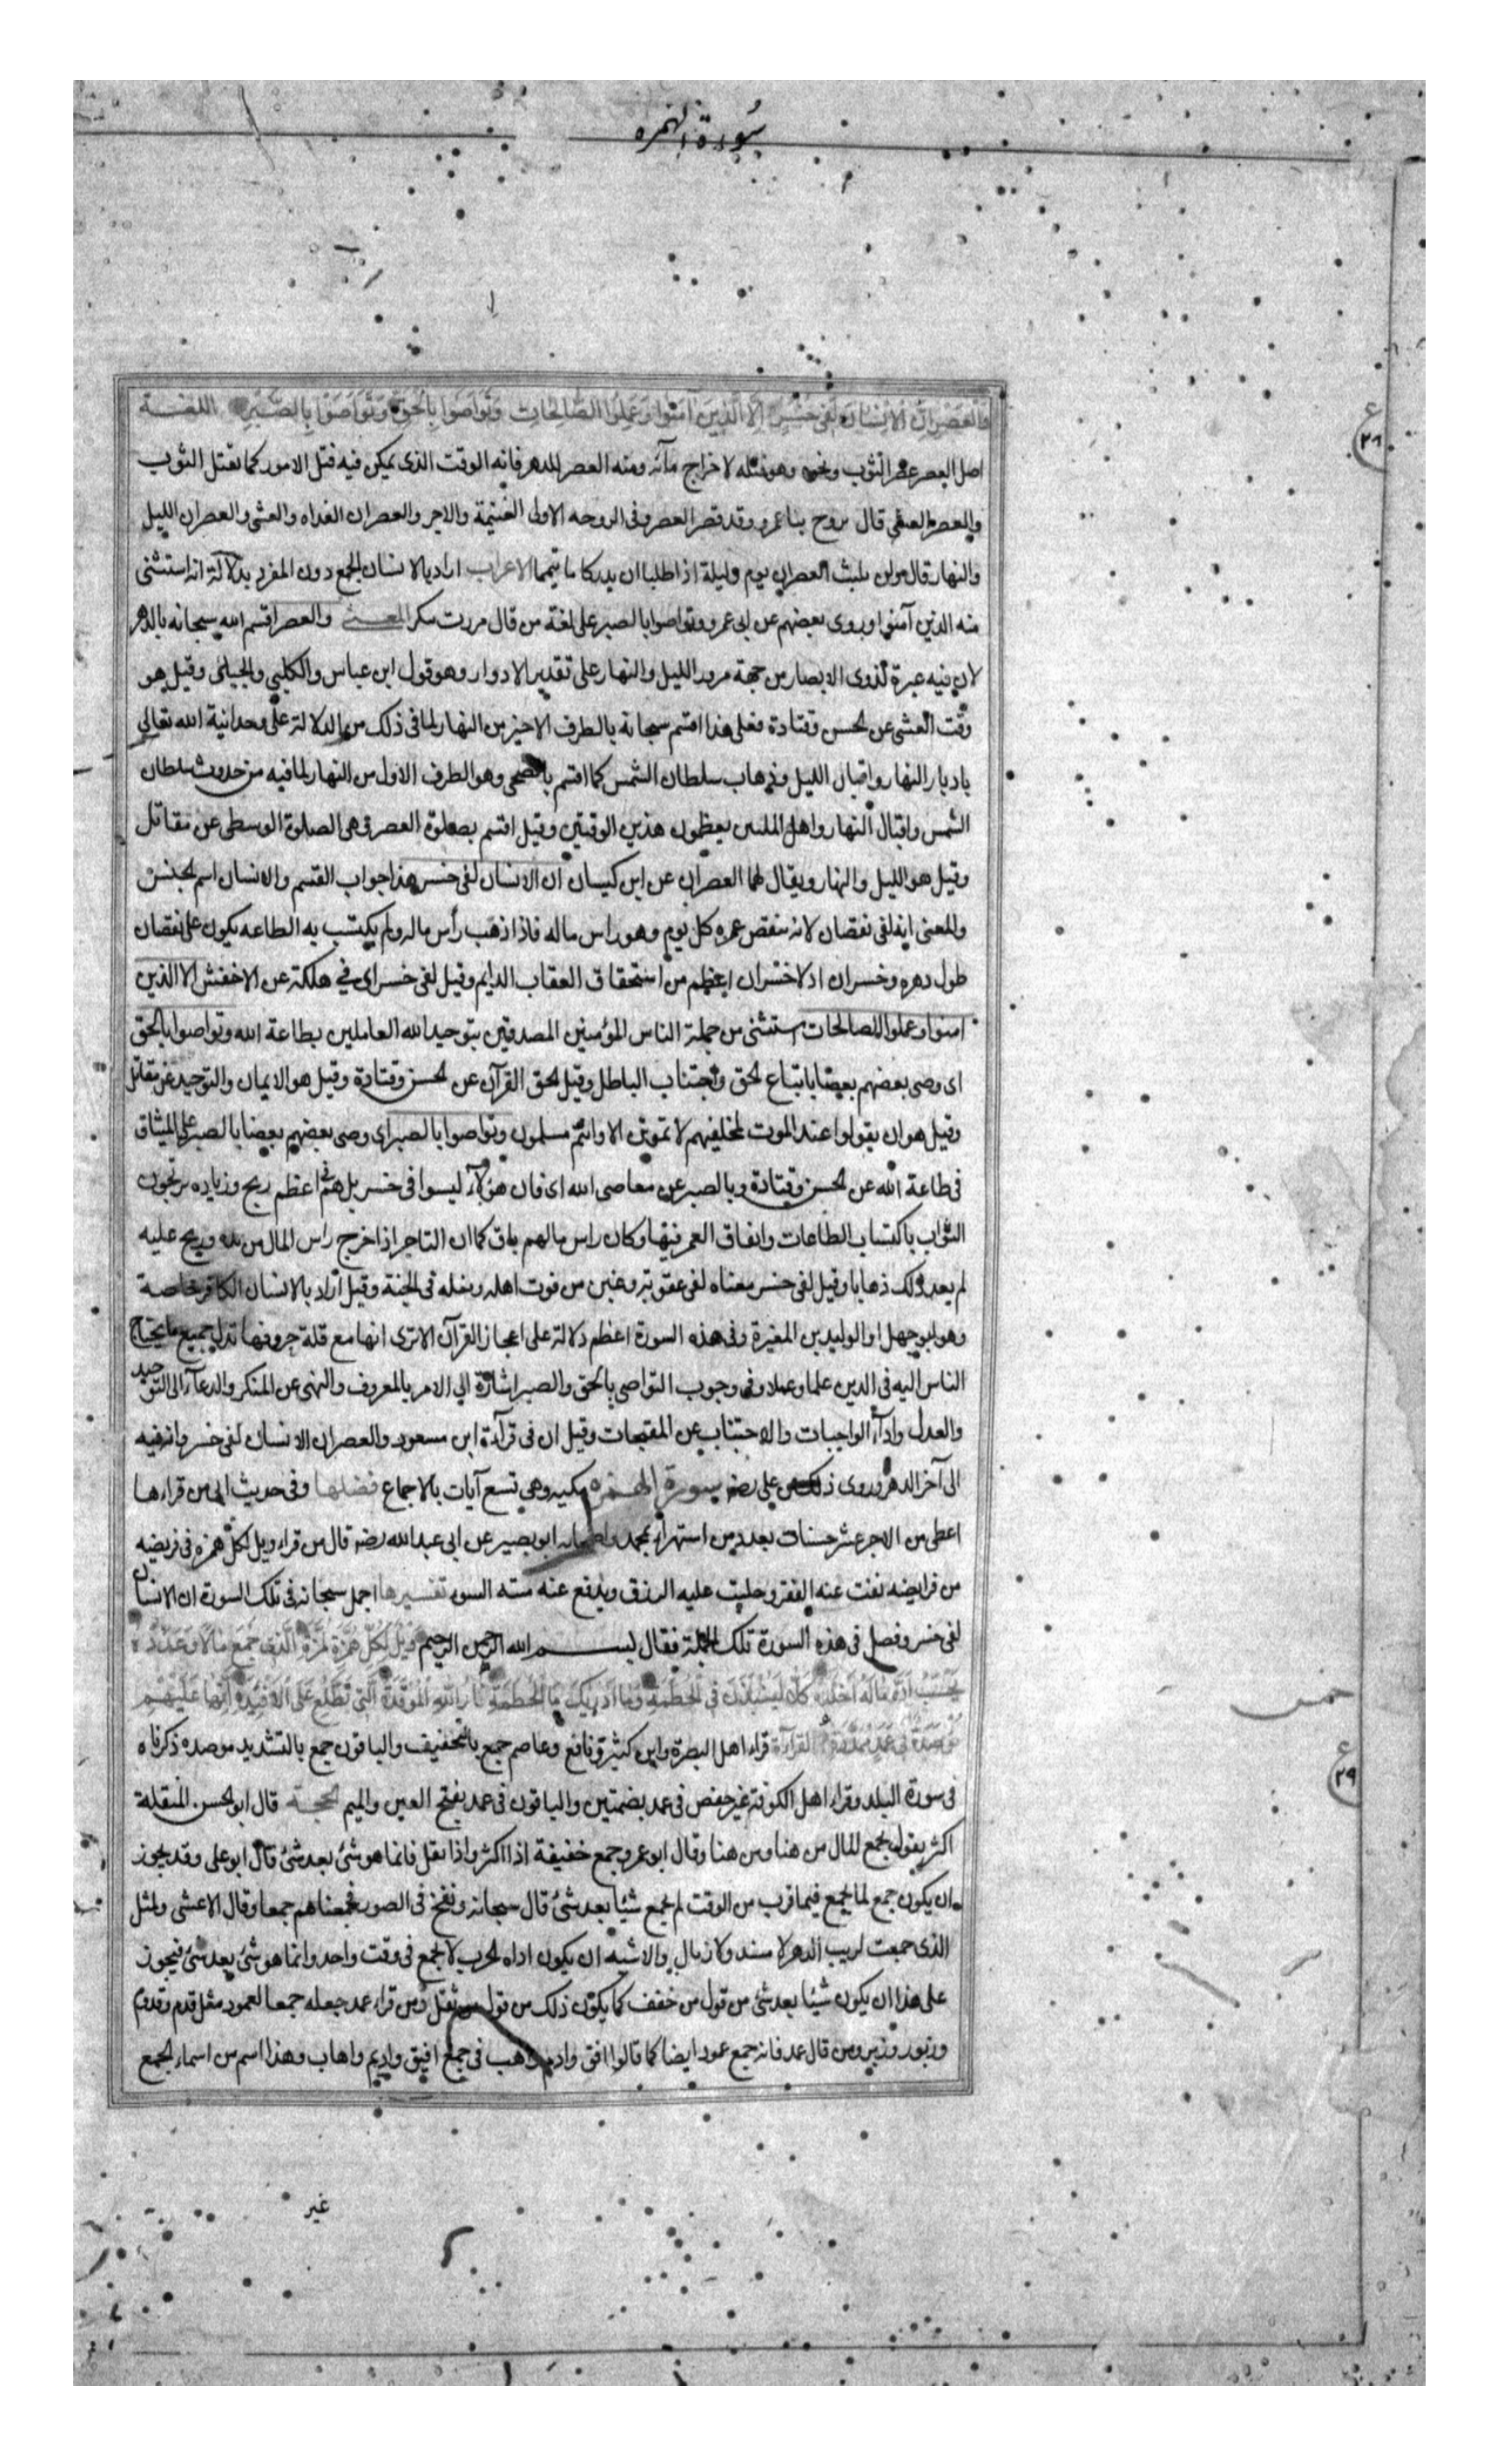 سورة الهمزه
والعصر ان الانسان لفى خسر الا الذين آمنوا وعملوا الصالحات وتواصوا بالحق وتواصوا بالصبر اللغــة
اصل العصر عصر الثوب ونحوه وهو فتله لاخراج مآئه ومنه العصر الدهر فانه الوقت الذى يمكن فيه فتل الامور كما تفتل الثوب
والعصر العشى قال يروح بنا عمرو وقد قصر العصر وفى الروحه الاولى الغنيمة والاجر والعصران الغداه والعشى والعصران الليل
والنهار قال ولن يلبث العصران يوم وليلة اذا طلبا ان يدركا ما تيمما الاعراب اراد بالانسان الجمع دون المفرد بدلالة انه استثنى
منه الذين آمنوا وروى بعضهم عن ابى عمرو وتواصوا بالصبر على لغة من قال مررت ببكر المعنــى والعصر اقسم الله سبحانه بالدهر
لان فيه عبرة لذوى الابصار من جهة مرور الليل والنهار على تقدير الادوار وهو قول ابن عباس والكلبي والجبائى وقيل هو
وقت العشى عن الحسن وقتادة فعلى هذا اقسم سبحانه بالطرف الاخير من النهار لما فى ذلك من الدلالة على وحدانية الله تعالى
بادبار النهار واقبال الليل وذهاب سلطان الشمس كما اقسم بالضحى وهو الطرف الاول من النهار لما فيه من حدوث سلطان
الشمس واقبال النهار واهل الملتين يعظمون هذين الوقتين وقيل اقسم بصلوة العصر وهى الصلوة الوسطى عن مقاتل
وقيل هو الليل والنهار ويقال لهما العصران عن ابن كيسان ان الانسان لفى خسر هذا جواب القسم والانسان اسم الجنس
والمعنى انه لفى نقصان لانه ينقص عمره كل يوم وهو راس ماله فاذا ذهب رأس ماله ولم يكتسب به الطاعه يكون على نقصان
طول دهره وخسران اذ لا خسران اعظم من استحقاق العقاب الدايم وقيل لفى خسر اى في هلكة عن الاخفش الا الذين
امنوا وعملوا الصالحات استثنى من جملة الناس المؤمنين المصدقين بتوحيد الله العاملين بطاعة الله وتواصوا بالحق
اى وصى بعضهم بعضا باتباع الحق واجتناب الباطل وقيل الحق القرآن عن الحسن وقتادة وقيل هو الايمان والتوحيد عن مقاتل
وقيل هو ان يقولوا عند الموت لمخلفيهم لا تموتن الا وانتم مسلمون وتواصوا بالصبر اى وصى بعضهم بعضا بالصبر على الميثاق
فى طاعة الله عن الحسن وقتادة وبالصبر عن معاصى الله اى فان هؤلآء ليسوا فى خسر بل هم فى اعظم ربح وزياده يربحون
الثواب باكتساب الطاعات وانفاق العمر فيها وكان راس مالهم باق كما ان التاجر اذا خرج راس المال من يده وربح عليه
لم يعد ذلك ذهابا وقيل لفى خسر معناه لفى عقوبة وغبن من فوت اهله ومنزله فى الجنة وقيل اراد بالانسان الكافر خاصة
وهو ابو جهل او الوليد بن المغيرة وفى هذه السورة اعظم دلالة على اعجاز القرآن الا ترى انها مع قلة حروفها تدل جميع ما يحتاج
الناس اليه فى الدين علما وعملا وفى وجوب التواصى بالحق والصبر اشارة الى الامر بالمعروف والنهى عن المنكر والدعآء الى التوحيد
والعدل وادآء الواجبات والاجتناب عن المقبحات وقيل ان فى قرآءة ابن مسعود والعصر ان الانسان لفى خسر وانه فيه
الى آخر الدهر وروى ذلك عن على رضه سورة الهمزه مكيه وهى تسع آيات بالاجماع فضلها وفى حديث ابى من قراءها
اعطى من الاجر عشر حسنات بعدد من استهزاء بمحمد واصحابه ابو بصير عن ابى عبد الله رضه قال من قراء ويل لكل همزه فى فريضه
من فرايضه نفت عنه الفقر وجلبت عليه الرزق ويدفع عنه ميته السوء تفسيرها اجمل سبحانه فى تلك السورة ان الانسان
لفى خسر وفصل فى هذه السورة تلك الجملة فقال بســم الله الرحمن الرحيم ويل لكل همزة لمزة الذى جمع مالا وعدده
يحسب ان ماله اخلده كلا لينبذن فى الحطمة وما ادريك ما الحطمة نار الله الموقدة التى تطلع على الافئدة انها عليهم
مؤصدة فى عمد ممددة القرآءة قراء اهل البصرة وابن كثير ونافع وعاصم جمع بالتخفيف والباقون جمع بالتشديد موصده ذكرناه
فى سورة البلد وقراء اهل الكوفة غير حفص فى عمد بضمتين والباقون فى عمد بفتح العين والميم الحجــة قال ابو الحسن المثقلة
اكثر يقول يجمع المال من هنا ومن هنا وقال ابو عمرو جمع خفيفة اذا اكثر واذا ثقل فانما هو شئ بعد شئ قال ابو على وقد يجوز
ان يكون جمع لما يجمع فيما قرب من الوقت لم يجمع شيئا بعد شئ قال سبحانه ونفخ فى الصور فجمعناهم جمعا وقال الاعشى ولمثل
الذى جمعت لريب الدهر لا مسند ولا زمال والاشبه ان يكون اداه الحرب لا تجمع فى وقت واحد وانما هو شئ بعد شئ فيجوز
على هذا ان يكون شيئا بعد شئ من قول من خفف كما يكون ذلك من قول من ثقل ومن قراء عمد جعله جمعا لعمود مثل قدم وقدوم
وزبور وزبر ومن قال عمد فانه جمع عمود ايضا كما قالوا افق وادم واهب فى جمع افيق واديم واهاب وهذا اسم من اسماء الجمع
غير
ع
٢٨
خمس
ع
٢٩